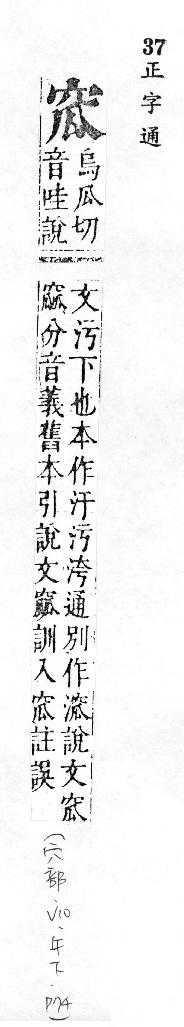 37 正字通
窊
烏瓜切
音哇說
文污下也本作汙污洿通別作溛說文窊
窳分音義舊本引說文窳訓入窊註誤
(穴部.V10.午下.P74)